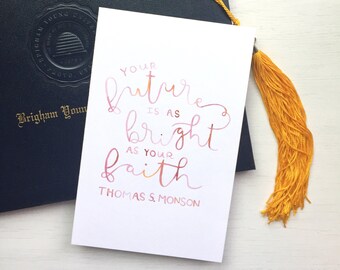 Brigham Youn
YOUR
future
IS AS
bright
AS YOUR
faith
THOMAS S. MONSON